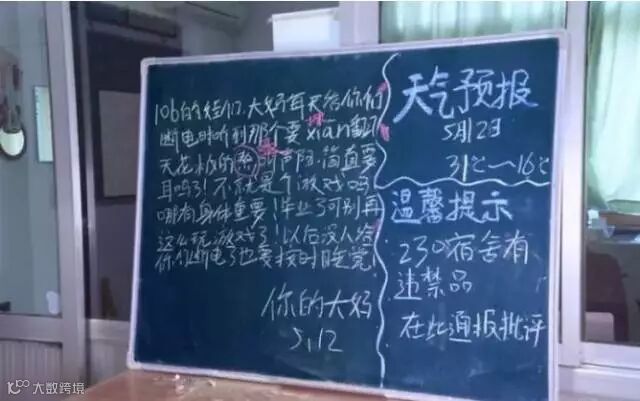 106的娃们.大妈每天给你们
断电时听到那个要xian翻
天花板的 叫声阿.简直要
耳鸣了!不就是个游戏吗
哪有身体重要!毕业了可别再
这么玩游戏了!以后没人给
你们断电了也要按时睡觉!
你的大妈
5.12
天气预报
5月12日
31℃~16℃
温馨提示
230宿舍有
违禁品
在此通报批评
大数跨境